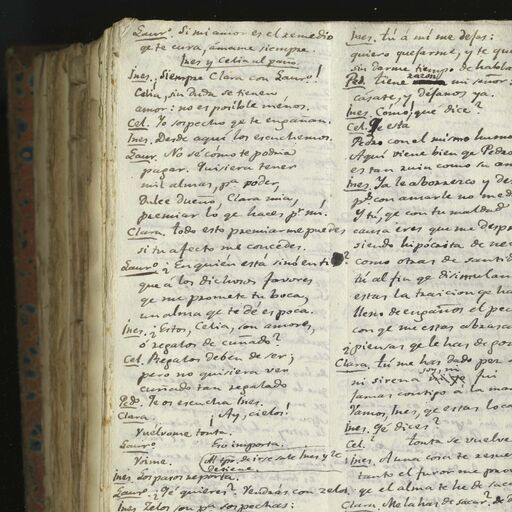 Laurº. Si mi amor es el remedio
qe te cura, ámame siempre.
Ines y Celia al paño.
Ines. ¡Siempre Clara con Laurº!
Celia, sin duda se tienen
amor: no es posible menos.
Cel. Yo sospecho qe te engañan.
Ines. Desde aquí los escuchemos.
Laur. No sé cómo te podria
pagar. Quisiera tener
mil almas, pa poder,
Dulce dueño, Clara mia,
premiar lo qe haces pr mí.
Clara. Todo esto premiarme puedes
si tu afecto me concedes.
Laurº. ¿En quién está sino en ti?
que á los dichosos favores
qe me promete tu boca,
un alma qe te dé es poca.
Ines. ¿Estos, Celia, son amores,
ó regalos de cuñado?
Cel. Regalos deben de ser;
pero no quisiera ver
cuñado tan regalado
Pedº. Te os escucha Ines.
Clara. ¡Ay, cielos!
Vuélvome tonta.
Laurº. Eso importa.
Voime. Al irse sale Ines y le
detiene.
Ines. Los pasos reporta.
Laurº. ¿Qé quieres? Vendrás con zelos.
Ines. Zelos son pr sospechas:
Ines. tú á mí me dejas:
quiero quejarme, y te que
sin darme tiempo de habla
Ped. tiene razon mi
cásate, y déjanos ya.
Ines. ¿Cómo? ¿qué dice?
Cel. Qe está
Pedro con el mismo humo
Aquí viene bien qe Pedro
es tan ruin como su am
Ines. Ya le aborrezco y de
pr con amarle no me
Y tú, qe con tu maldad
causa eres que me desp
siendo hipócrita de ne
como otras de santid
tú al fin qe disimulan
estas la traicion qe ha
lleno de engaños el pe
con qe me estas abrasa
¿piensas qe le has de goz
Clara. tú me has dado por
ni sirena soy, ni fui
jamas contigo a la mar
Vamos, Ines, qe estas loca
Ines. ¿Qé dices?
Cel. tonta se vuelve
Ines. A una cosa te
tanto el furor me pro
qe el alma te he de saca
Clara. ¿Me la has de sacar? de d